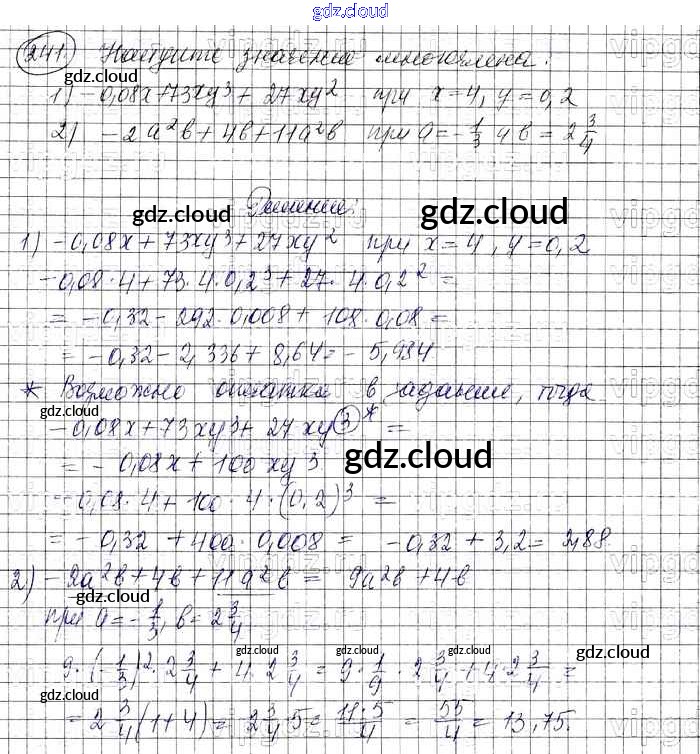 gdz.cloud
241. Найдите значение многочлена:
gdz.cloud
1) -0,08x+73xy³+27xy² при x=4, y=0,2
2) -2a²b+4b+11a²b при a=-1/3 и b=2 3/4
Решение:
gdz.cloud gdz.cloud
1) -0,08x+73xy³+27xy² при x=4, y=0,2
-0,08·4+73·4·0,2³+27·4·0,2²=
= -0,32-292·0,008+108·0,08=
= -0,32-2,336+8,64=-5,984
* Возможно опечатка в задании, тогда
gdz.cloud
-0,08x+73xy³+27xy③* =
= -0,08x+100xy3
gdz.cloud
-0,08·4+100·4·(0,2)³ =
= -0,32+400·0,008 = -0,32+3,2=2,88
2) -2a²b+4b+11a²b = 9a²b+4b
gdz.cloud
при a=-1/3, b=2 3/4
gdz.cloud gdz.cloud
9·(-1/3)²·2 3/4+4·2 3/4=9·1/9·2 3/4+4·2 3/4=
gdz.cloud
=2 3/4(1+4)=2 3/4·5=11·5/4=55/4=13,75.